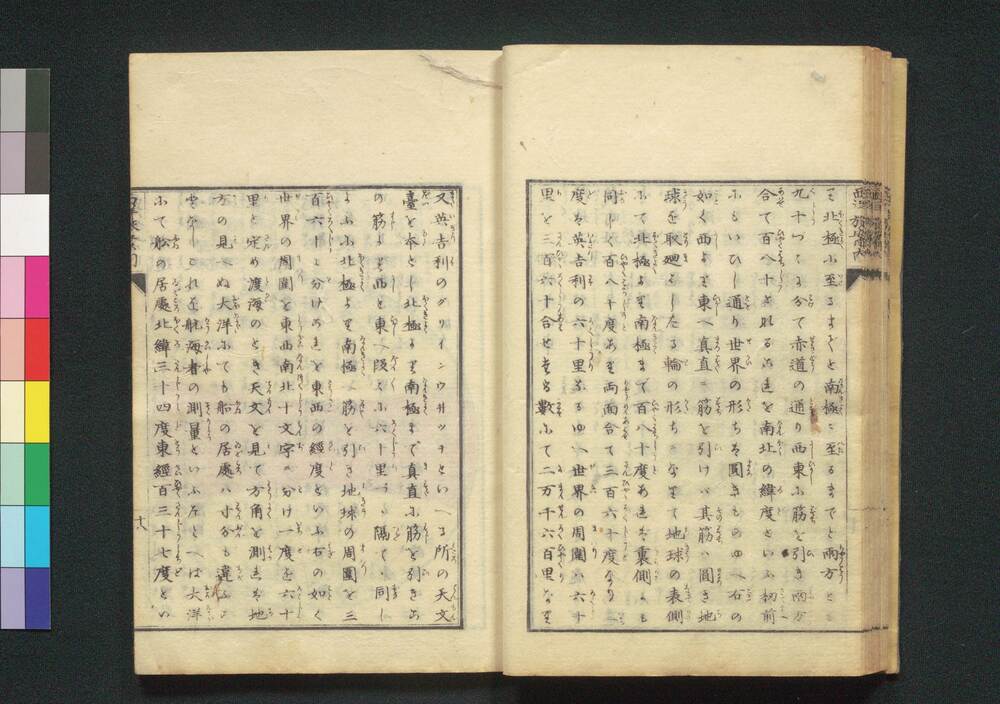 北極ふ至るまでと南極に至るまでと両方
九十づゝに分て赤道の通り西東ふ筋を引き両方
合て百八十となるこれを南北の緯度といふ扨前
ふもいひし通り世界の形ちを圓きものゆへ右の
如く西より東へ真直に筋を引けバ其筋ハ圓き地
球を取廻したる輪の形ちになりて地球の表側
ふて北極より南極まで百八十度あれバ裏側にも
同しく百八十度あり両面合て三百六十度なり
度を英吉利の六十里なるゆへ世界の周圍ハ六十
里を三百六十合せたる數ふて二万千六百里なり
又英吉利のグリインウ井ッチといへる所の天文
臺を本とし北極より南極まで真直ふ筋を引き
の筋より西と東へ段々ふ六十里づゝ隔て同し
ふ北極より南極へ筋を引き地球の周圍を三
百六十に分けこれを東西の經度といふ右の如く
世界の周圍を東西南北十文字に分け一度を六十
里と定め渡海のとき天文を見て方角を測れバ地
方の見へぬ大洋ふても船の居處ハ寸分も違ふ
これを航海者の測量といふ左とへば大洋
ふて船の居處北緯三十四度東經百三十七度とい
十八